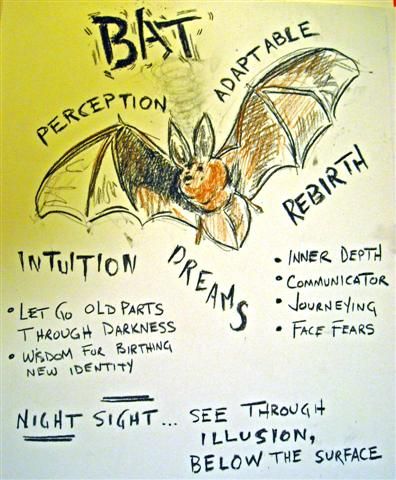 BAT
PERCEPTION
ADAPTABLE
REBIRTH
INTUITION
DREAMS
• LET GO OLD PARTS
THROUGH DARKNESS
• WISDOM FOR BIRTHING
NEW IDENTITY
• INNER DEPTH
• COMMUNICATOR
• JOURNEYING
• FACE FEARS
NIGHT SIGHT... SEE THROUGH
ILLUSION,
BELOW THE SURFACE